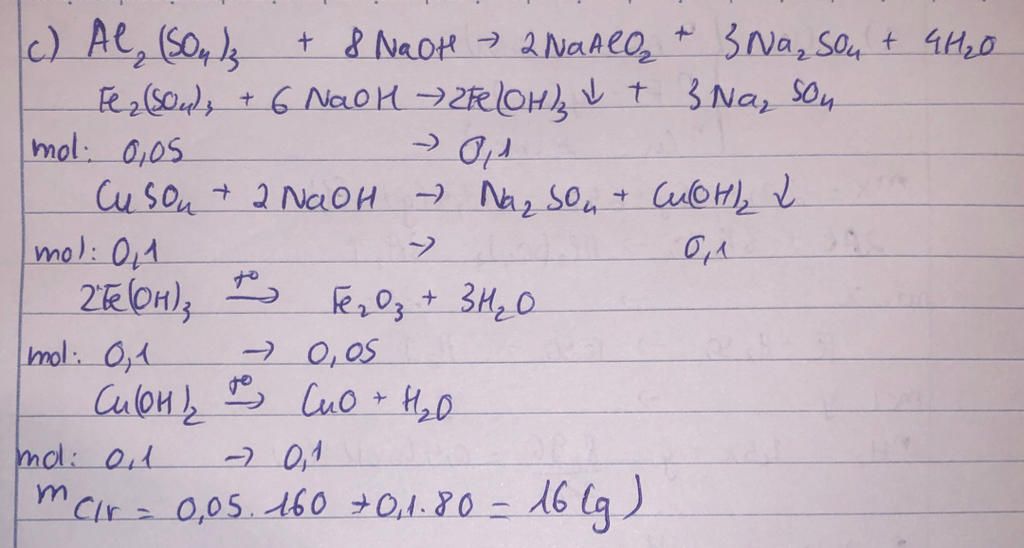 c) Al2(SO4)3 + 8NaOH → 2NaAlO2 + 3Na2SO4 + 4H2O
Fe2(SO4)3 + 6NaOH → 2Fe(OH)3 ↓ + 3Na2SO4
mol: 0,05 → 0,1
CuSO4 + 2NaOH → Na2SO4 + Cu(OH)2 ↓
mol: 0,1 → 0,1
2Fe(OH)3 t° → Fe2O3 + 3H2O
mol: 0,1 → 0,05
Cu(OH)2 t° → CuO + H2O
mol: 0,1 → 0,1
m C/r = 0,05.160 + 0,1.80 = 16 (g)